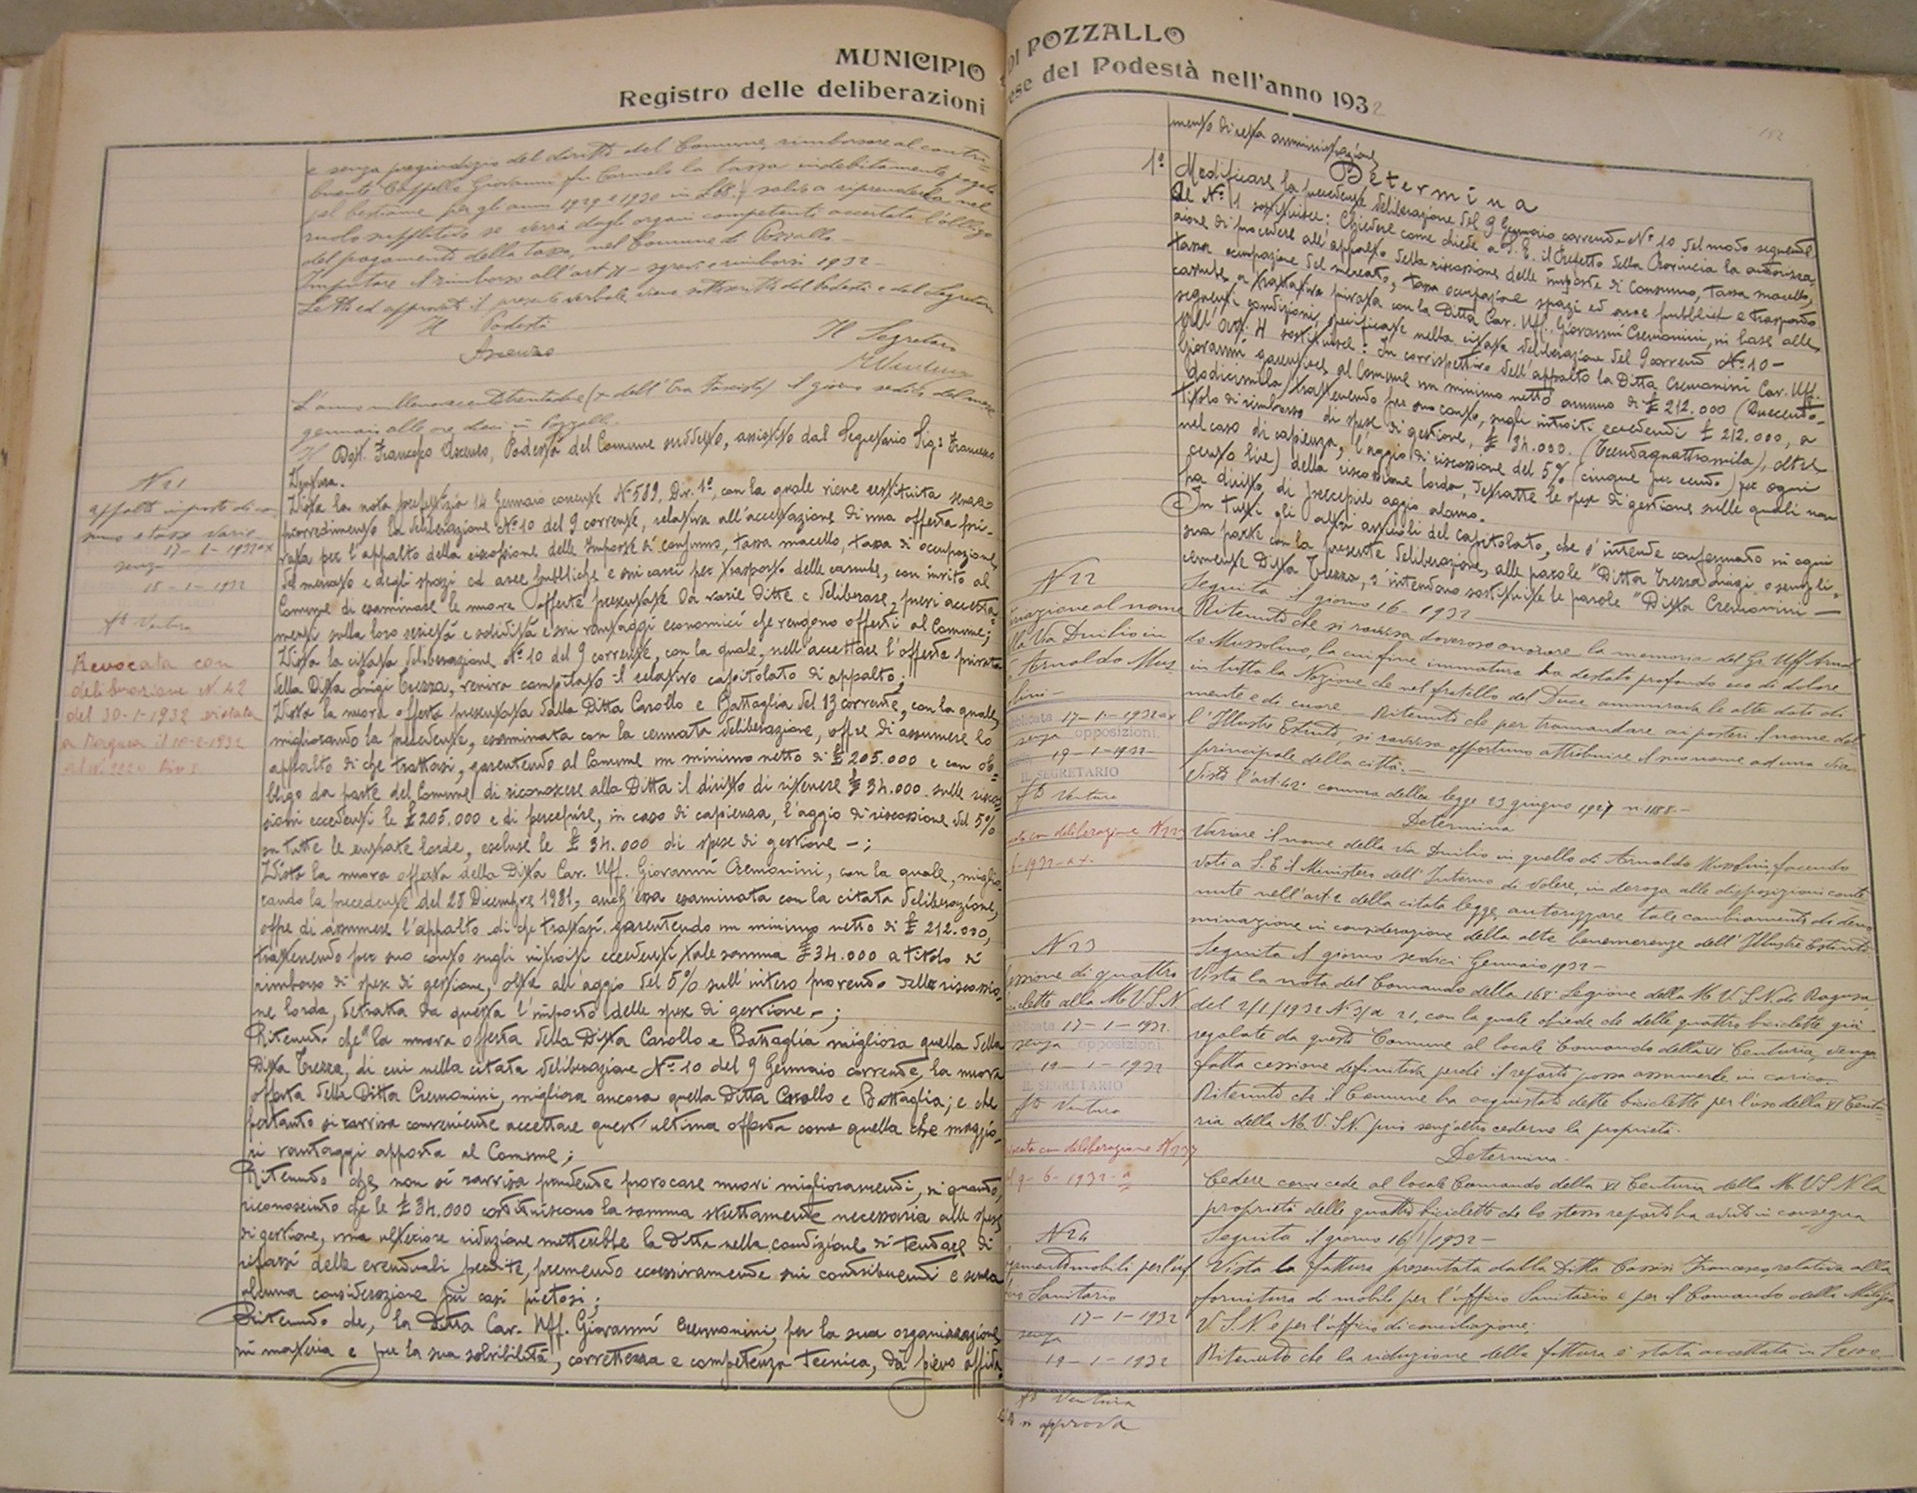 MUNICIPIO DI POZZALLO
Registro delle deliberazioni prese del Podestà nell'anno 1932
e senza pregiudizio del diritto del Comune, rimborsare al contri-
buente Cappello Giovanni fu Carmelo la tassa indebitamente pagata
sul bestiame per gli anni 1929 e 1930 in salvo a riprenderla nel
ruolo suppletivo se verrà dagli organi competenti accertato l'obbligo
del pagamento della tassa, nel Comune di Pozzallo.
Imputare il rimborso all'art. sgravi e rimborsi 1932 -
Letto ed approvato il presente verbale viene sottoscritto dal Podestà e dal Segretario
Il Podestà
Il Segretario
L'anno millenovecentotrentadue (X dell'Era Fascista) il giorno sedici del mese
gennaio alle ore dieci in Pozzallo.
Il Dott. Francesco Podestà del Comune suddetto, assistito dal Segretario Sig. Francesco
Ventura.
N 21
appalto imposte di con-
sumo e tasse varie
17-1-1932
senza
18-1-1932
fto Ventura
Revocata con
deliberazione N. 42
del 30-1-1932 vistata
a Ragusa il 10-2-1932
Vista la nota prefettizia 14 Gennaio corrente N° 589, Div. 1ª, con la quale viene restituita senza
provvedimento la deliberazione N° 10 del 9 corrente, relativa all'accettazione di una offerta pri-
vata per l'appalto della riscossione delle Imposte di consumo, tassa macello, tassa di occupazione
del mercato e degli spazi ed aree pubbliche e sui carri per trasporto delle carni, con invito al
Comune di esaminare le nuove offerte presentate da varie Ditte e deliberare, previ accerta-
menti sulla loro serietà e solidità e sui vantaggi economici che vengono offerti al Comune;
Vista la citata deliberazione N° 10 del 9 corrente, con la quale, nell'accettare l'offerta privata
della Ditta Luigi Trezza, veniva compilato il relativo capitolato di appalto;
Vista la nuova offerta presentata dalla Ditta Carollo e Battaglia del 13 corrente, con la quale,
migliorando la precedente, esaminata con la cennata deliberazione, offre di assumere lo
appalto di che trattasi, garentendo al Comune un minimo netto di £ 205.000 e con ob-
bligo da parte del Comune di riconoscere alla Ditta il diritto di ritenere £ 34.000 sulle riscos-
sioni eccedenti le £ 205.000 e di percepire, in caso di capienza, l'aggio di riscossione del 5%
su tutte le entrate lorde, escluse le £ 34.000 di spese di gestione -;
Vista la nuova offerta della Ditta Cav. Uff. Giovanni Cremonini, con la quale, miglio-
rando la precedente del 28 Dicembre 1931, anch'essa esaminata con la citata deliberazione,
offre di assumere l'appalto di che trattasi, garentendo un minimo netto di £ 212.000,
trattenendo per suo conto sugli introiti eccedenti tale somma £ 34.000 a titolo di
rimborso di spese di gestione, oltre all'aggio del 5% sull'intero provento delle riscossio-
ne lorda, detratta da questa l'importo delle spese di gestione -;
Ritenuto che la nuova offerta della Ditta Carollo e Battaglia migliora quella della
Ditta Trezza, di cui nella citata deliberazione N° 10 del 9 Gennaio corrente, la nuova
offerta della Ditta Cremonini, migliora ancora quella Ditta Carollo e Battaglia; e che
pertanto si ravvisa conveniente accettare quest'ultima offerta come quella che maggio-
ri vantaggi apporta al Comune;
Ritenuto che non si ravvisa prudente provocare nuovi miglioramenti, in quanto,
riconosciuto che le £ 34.000 costituiscono la somma strettamente necessaria alle spese
di gestione, una ulteriore riduzione metterebbe la Ditta nella condizione di tendere di
rifarsi delle eventuali perdite, premendo eccessivamente sui contribuenti e senza
alcuna considerazione pei casi pietosi;
Ritenuto che, la Ditta Cav. Uff. Giovanni Cremonini, per la sua organizzazione
in materia e per la sua solvibilità, correttezza e competenza tecnica, dà pieno affida-
mento di retta amministrazione
Determina
1° Modificare la precedente deliberazione del 9 Gennaio corrente N° 10 del modo seguente
Al N° 11 sostituire: Chiedere come chiede a S. E. il Prefetto della Provincia la autorizza-
zione di procedere all'appalto della riscossione delle imposte di consumo, tassa macello,
tassa occupazione del mercato, tassa occupazione spazi ed aree pubbliche e trasporto
carni, a trattativa privata con la Ditta Cav. Uff. Giovanni Cremonini, in base alle
seguenti condizioni, specificate nella citata deliberazione del 9 corrente N° 10 -
All'art. 4 sostituire: In corrispettivo dell'appalto la Ditta Cremonini Cav. Uff.
Giovanni garentisce al Comune un minimo netto annuo di £ 212.000 (Duecento-
dodicimila) trattenendo per suo conto, sugli introiti eccedenti £ 212.000, a
titolo di rimborso di spese di gestione, £ 34.000. (Trentaquattromila), oltre
nel caso di capienza, l'aggio di riscossione del 5% (cinque per cento) per ogni
cento lire) della riscossione lorda, detratte le spese di gestione sulle quali non
ha diritto di percepire aggio alcuno.
In tutti gli altri articoli del capitolato, che s'intende confermato in ogni
sua parte con la presente deliberazione, alle parole "Ditta Trezza Luigi o sempli-
cemente Ditta Trezza, s'intendono sostituite le parole "Ditta Cremonini -
N 22
Variazione al nome
della Via Duilio in
Arnaldo Mus-
solini -
17-1-1932
senza opposizioni
19-1-1932
IL SEGRETARIO
fto Ventura
con deliberazione N
6-1932-
Seguita il giorno 16-1932
Ritenuto che si ravvisa doveroso onorare la memoria del Gr. Uff. Arnal-
do Mussolini, la cui fine immatura ha destato profondo eco di dolore
in tutta la Nazione che nel fratello del Duce ammirava le alte doti di
mente e di cuore - Ritenuto che per tramandare ai posteri il nome del-
l'Illustre Estinto, si ravvisa opportuno attribuire il suo nome ad una via
principale della città. -
Visto l'art. comma della legge 23 giugno 1927 n. 1188 -
Determina
Variare il nome della Via Duilio in quello di Arnaldo Mussolini, facendo
voti a S. E. il Ministero dell'Interno di volere, in deroga alle disposizioni conte-
nute nell'art. 2 della citata legge, autorizzare tale cambiamento di deno-
minazione in considerazione delle alte benemerenze dell'Illustre Estinto.
N 23
Cessione di quattro
biciclette alla M.V.S.N.
17-1-1932
senza opposizioni
19-1-1932
IL SEGRETARIO
fto Ventura
Revocata con deliberazione N
9-6-1932-
Seguita il giorno sedici Gennaio 1932 -
Vista la nota del Comando della 168ª Legione della M.V.S.N. di Ragusa,
del 2/1/1932 con la quale chiede che delle quattro biciclette già
regalate da questo Comune al locale Comando della VI Centuria, venga
fatta cessione definitiva perché il reparto possa assumerle in carico.
Ritenuto che il Comune ha acquistato dette biciclette per l'uso della VI Centu-
ria della M.V.S.N. pur senz'altro cederne la proprietà.
Determina.
Cedere come cede al locale Comando della VI Centuria della M.V.S.N. la
proprietà delle quattro biciclette che lo stesso reparto ha avuto in consegna
N 24
mobili per l'uf-
ficio Sanitario
17-1-1932
senza
19-1-1932
fto Ventura
si approva
Seguita il giorno 16/1/1932 -
Vista la fattura presentata dalla Ditta Francesco, relativa alla
fornitura di mobili per l'ufficio Sanitario e per il Comando della Milizia
V.S.N. e per l'ufficio di conciliazione;
Ritenuto che la riduzione della fattura è stata accettata in